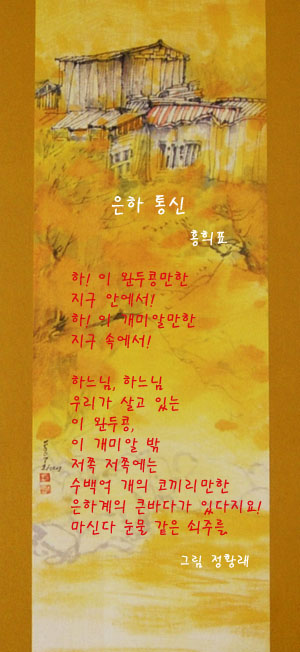 은하 통신
홍희표
하! 이 완두콩만한
지구 안에서!
하! 이 개미알만한
지구 속에서!
하느님, 하느님
우리가 살고 있는
이 완두콩,
이 개미알 밖
저쪽 저쪽에는
수백억 개의 코끼리만한
은하계의 큰바다가 있다지요!
마신다 눈물 같은 쇠주를.
그림 정황래